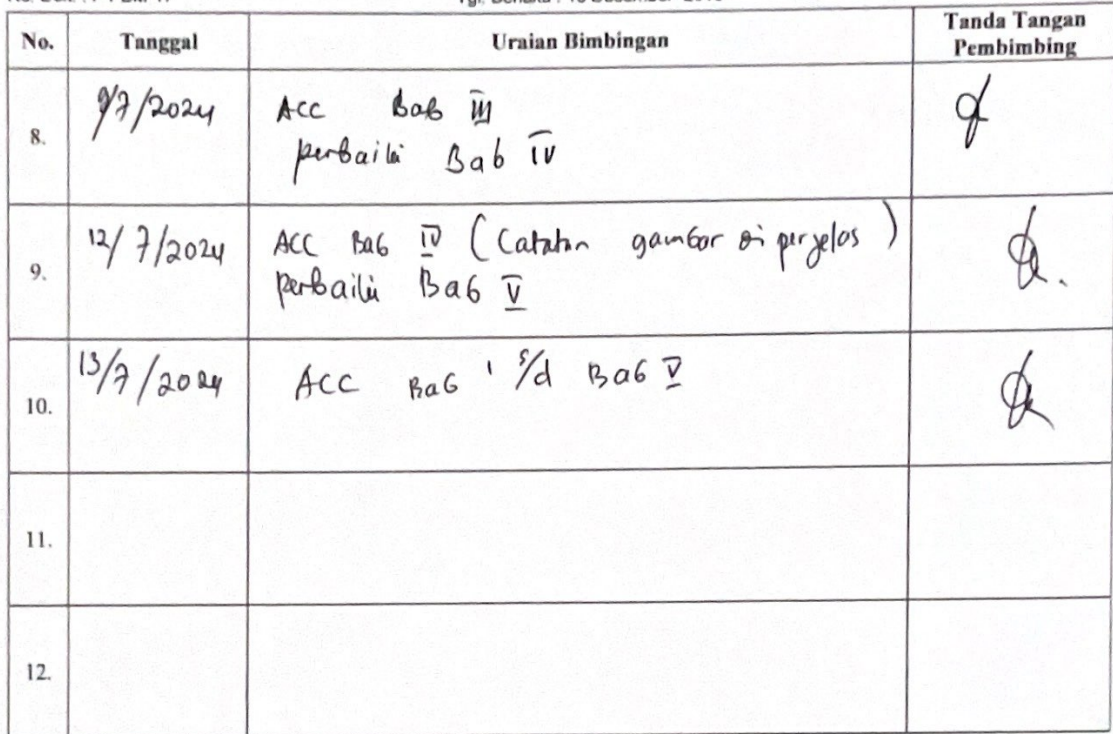 No. Tanggal Uraian Bimbingan Tanda Tangan Pembimbing
8. 9/7/2024 ACC Bab III
perbaiki Bab IV
9. 12/7/2024 ACC Bab IV (Catatan gambar di perjelas)
perbaiki Bab V
10. 13/7/2024 ACC Bab I s/d Bab V
11.
12.